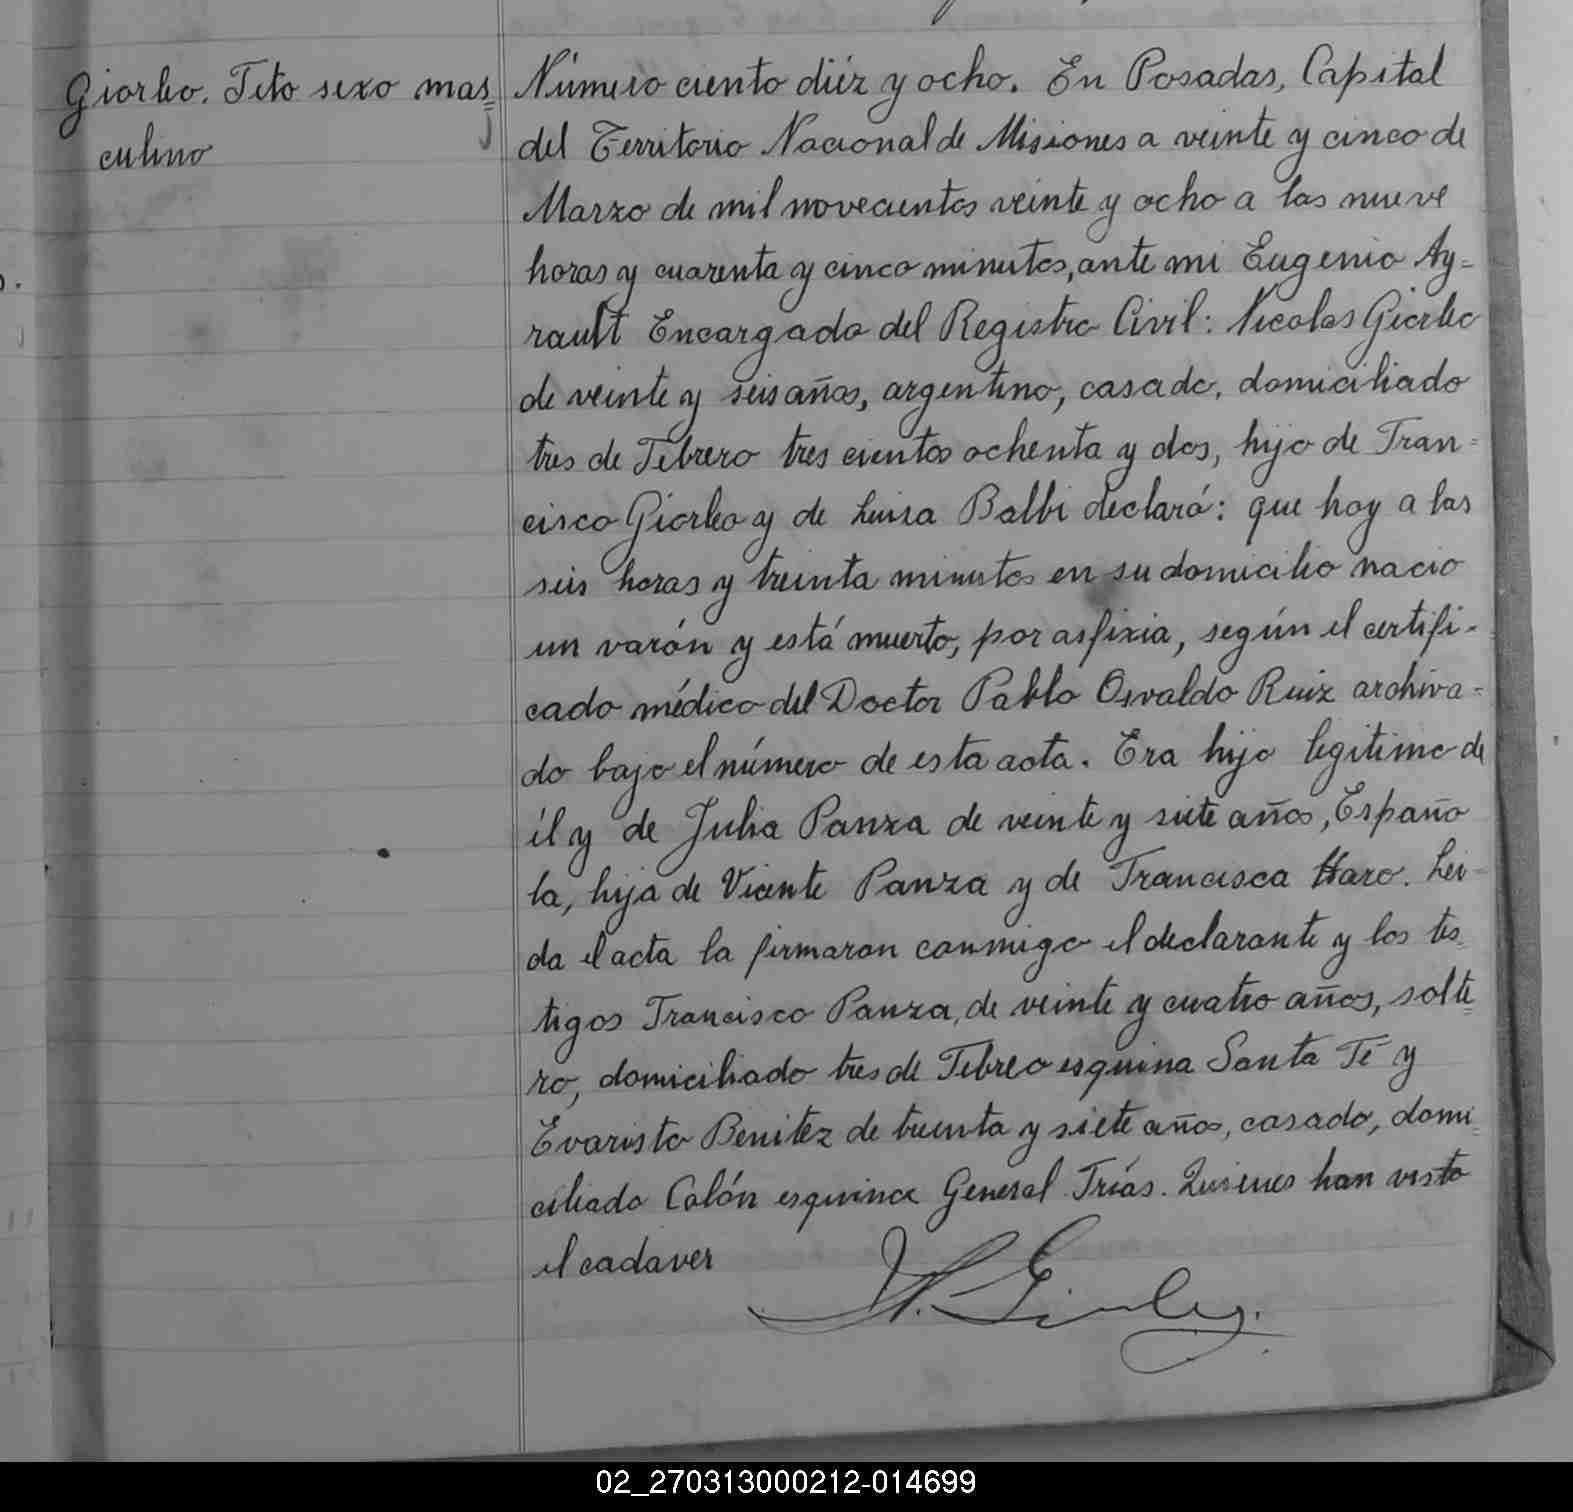 Giorleo. Feto sexo mas=
culino
Número ciento diéz y ocho. En Posadas, Capital
del Territorio Nacional de Misiones a veinte y cinco de
Marzo de mil novecientos veinte y ocho a las nueve
horas y cuarenta y cinco minutos, ante mi Eugenio Ay=
rault Encargado del Registro Civil: Nicolas Giorleo
de veinte y seis años, argentino, casado, domiciliado
tres de Febrero tres cientos ochenta y dos, hijo de Fran=
cisco Giorleo y de Luisa Balbi declaró: que hoy a las
seis horas y treinta minutos en su domicilio nacio
un varón y está muerto, por asfixia, según el certifi-
cado médico del Doctor Pablo Osvaldo Ruiz archiva=
do bajo el número de esta acta. Era hijo legitimo de
él y de Julia Panza de veinte y siete años, Españo
la, hija de Vicente Panza y de Francisca Haro. Lei-
da el acta la firmaron conmigo el declarante y los tes=
tigos Francisco Panza, de veinte y cuatro años, solte=
ro, domiciliado tres de Febreo esquina Santa Fé y
Evaristo Benitéz de treinta y siete años, casado, domi=
ciliado Colón esquina General Frías. Quienes han visto
el cadaver
02_270313000212-014699